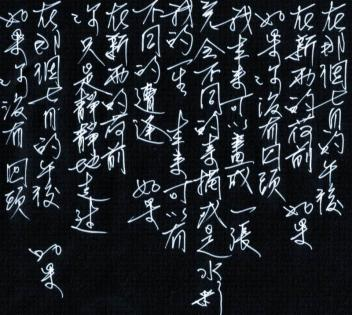 在那個七月的午後
在新雨的荷前 如果
如果你沒有回頭
我本來可以畫成一張
完全不同的素描或是水彩
我的一生 本來可以有
不同的遭逢 如果
在新雨的荷前
你只是靜靜地走過
在那個七月的午後 如果
如果你沒有回頭